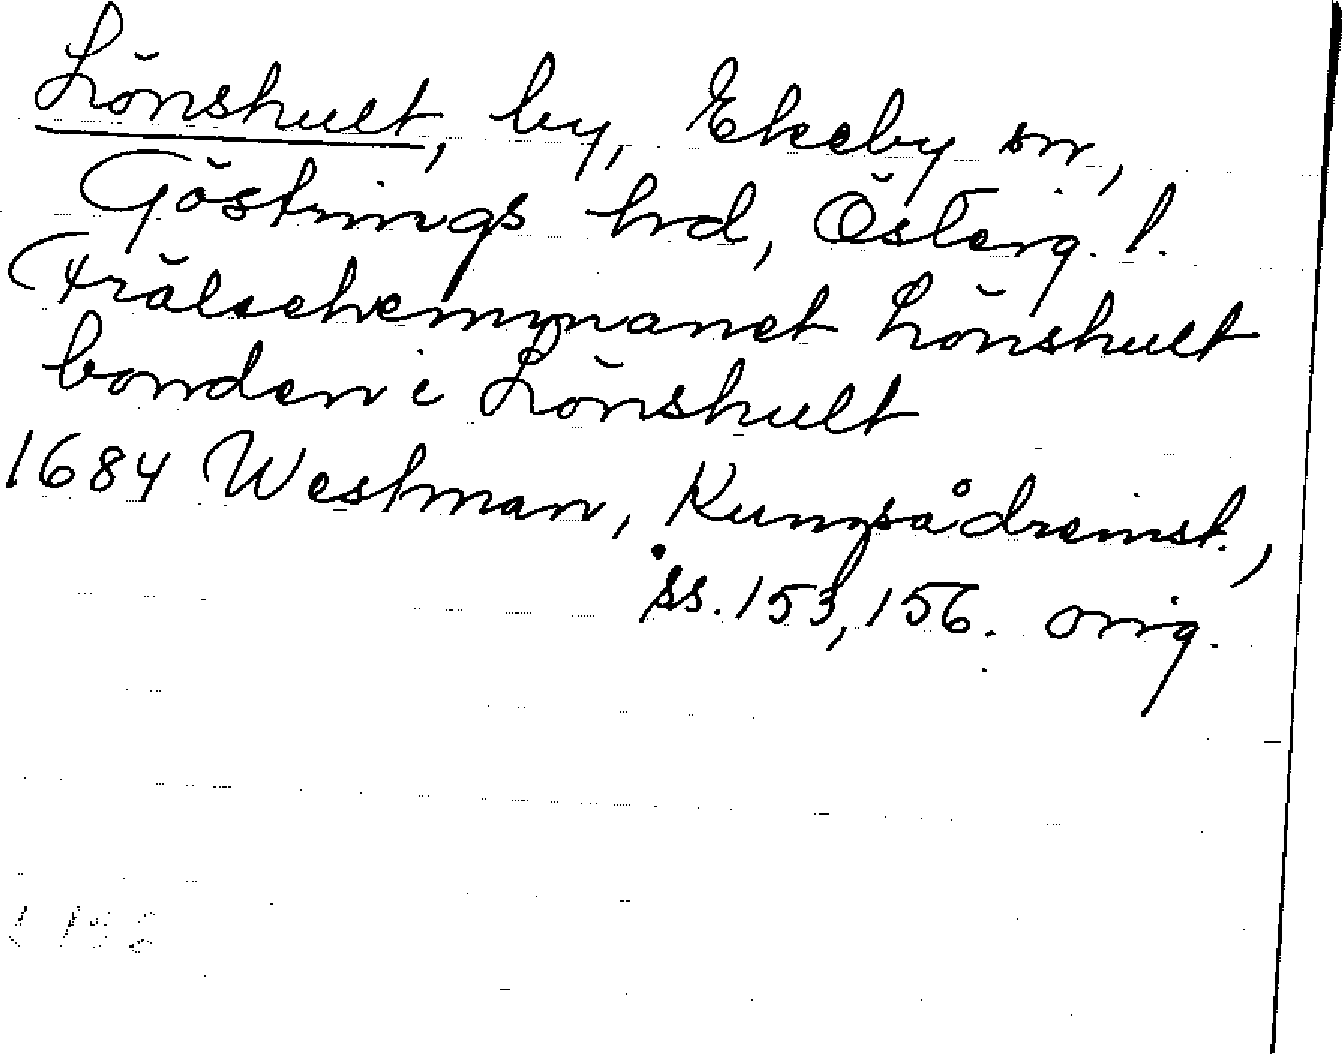 Lönshult, by, Ekeby sn,
Göstrings hrd, Österg. l.
Frälsehemmanet Lönshult
bonden i Lönshult
1684 Westman, Kungsådreinst.,
ss. 153, 156. orig.